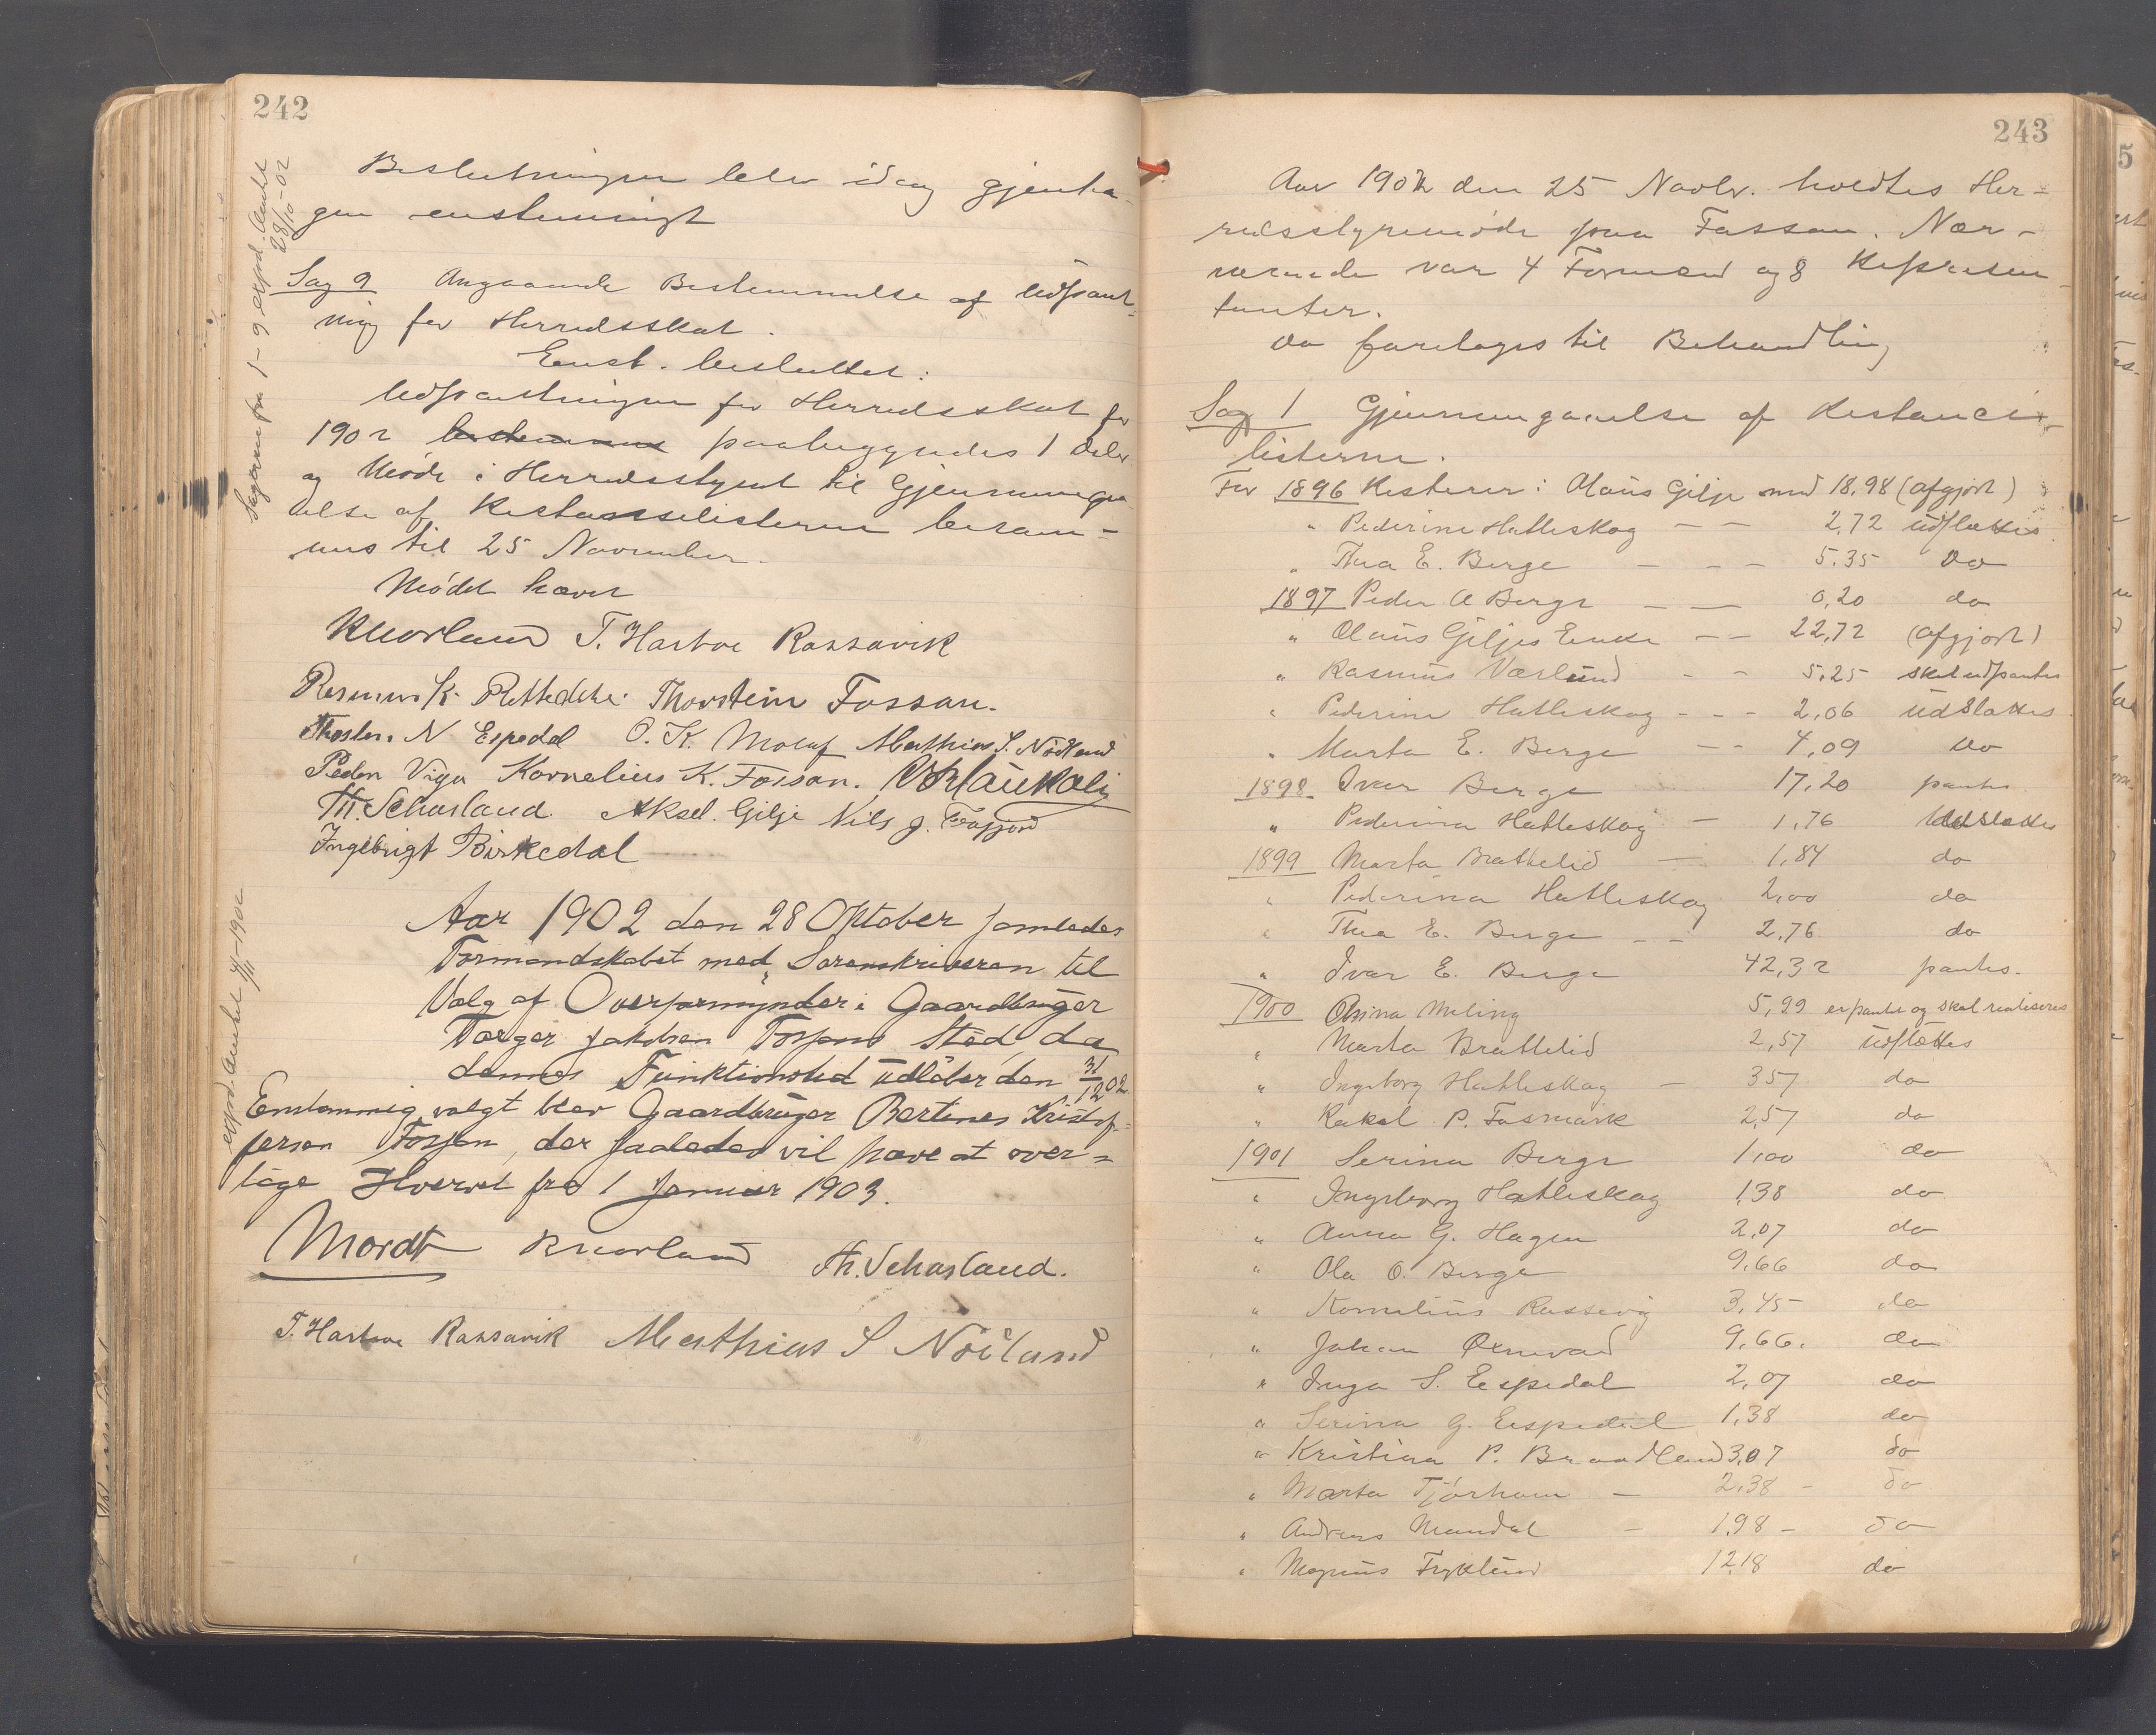 242
Beslutningen blev idag gjenta-
gen enstemmigt
Sag 9 Angaaende Bestemmelse af Udpant-
ning for Herredsskat.
Enst. besluttet:
Udpantningen for Herredsskat for
1902 bestemmes paabegyndes 1 Debr
og Møde i Herredsstyret til Gjennemgaa-
else af Restanselisterne beram-
mes til 25 November.
Mødet hævet
T. Hartvo Rossavik
Rasmus K. Thorstein Fossan.
N Espedal O. K. Mathias S. Nødland
Peder Viga Kornelius K. Fossan.
Th. Schasland. Aksel Gilje Nils J. Frafjord
Ingebrigt Birkedal
Aar 1902 den 28 Oktober samledes
Formandskabet med Sorenskriveren til
Valg af Overformynder i Gaardbruger
Torger Jakobsen Fossans Sted, da
dennes Funktionstid udløber den 31/12 02
Enstemmig valgt blev Gaardbruger Bertines Kristof-
fersen Fossan, der saaledes vil have at over-
tage Hvervet fra 1 Januar 1903.
Mordt Th. Schasland.
T. Hartvo Rossavik Mathias S Nödland
Sagerne fra 1-9 expd. Amtet
28/10-02
expd. Amtet 4/11-1902
243
Aar 1902 den 25 Novbr. holdtes Her-
redsstyremøde paa Fossan. Nær-
værende var 4 Formænd og 8 Repræsen-
tanter.
Da foretoges til Behandling
Sag 1 Gjennemgaaelse af Restance-
listerne.
For 1896 Resterer: Olaus Gilje med 18,98 (afgjort)
" Pederine Hatleskog - - 2,72 udslettes
" Thea E. Berge - - - 5.35 Do
1897 Peder A Berge - - 0,20 do
" Olaus Giljes Enke - - 22,72 (afgjort)
" Rasmus Værland - - 5,25 skal udpantes
" Pederine Hatleskog - - - 2,06 udslattes
" Marta E. Berge - - 4,09 Do
1898 Iver Berge 17,20 pantes
" Pederina Hatleskog - 1,76 Udslattes
1899 Marta Brattelid - 1,84 do
" Pederina Hatleskog 2,00 do
" Thea E. Berge - - 2,76 do
" Ivar E. Berge 42,32 pantes.
1900 Meling 5,99 er pantet og skal realiseres
" Marta Brattelid 2,57 udslettes
" Ingeborg Hatleskog - 357 do
" Rakel P. Fosmark 2,57 do
1901 Serina Berge 1,00 do
" Ingeborg Hatleskog 1,38 do
" Anna G. Hagen 2,07 do
" Ola O. Berge 9,66 do
" Kornelius Rossevig 3,45 do
" Johan 9,66. do
" Inga S. Espedal 2,07 do
" Serina G. Espedal 1,38 do
" Kristina P. Braadland 3,07 do
" Marta Tjörhom - 2,38 - do
" Andreas Mundal - 1,98 - do
" Magnus Fryklund 12,18 do